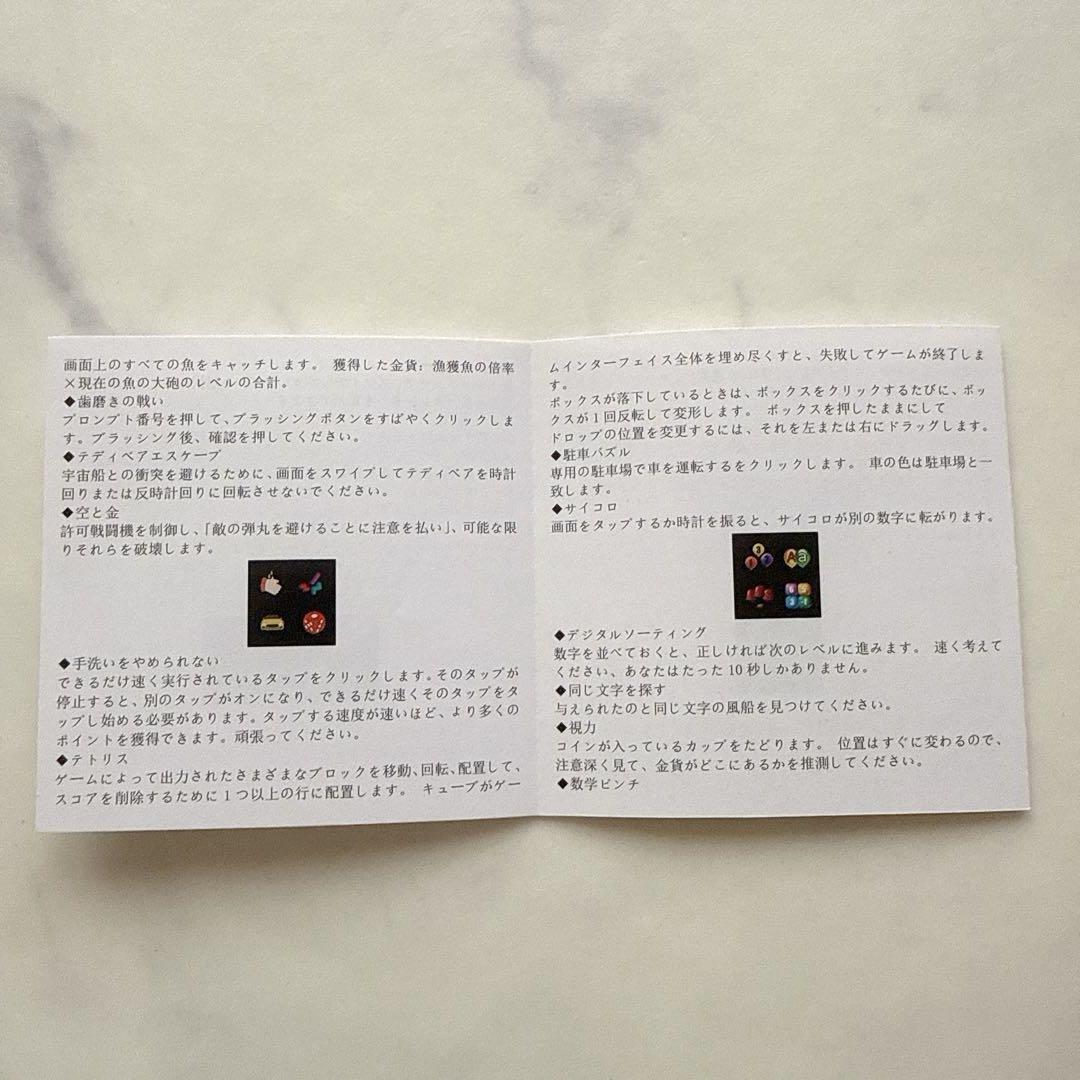 画面上のすべての魚をキャッチします。 獲得した金貨: 漁獲魚の倍率
×現在の魚の大砲のレベルの合計。
◆歯磨きの戦い
プロンプト番号を押して、ブラッシングボタンをすばやくクリックしま
す。ブラッシング後、確認を押してください。
◆テディベアエスケープ
宇宙船との衝突を避けるために、画面をスワイプしてテディベアを時計
回りまたは反時計回りに回転させないでください。
◆空と金
許可戦闘機を制御し、「敵の弾丸を避けることに注意を払い」、可能な限
りそれらを破壊します。
◆手洗いをやめられない
できるだけ速く実行されているタップをクリックします。そのタップが
停止すると、別のタップがオンになり、できるだけ速くそのタップをタ
ップし始める必要があります。タップする速度が速いほど、より多くの
ポイントを獲得できます。頑張ってください。
◆テトリス
ゲームによって出力されたさまざまなブロックを移動、回転、配置して、
スコアを削除するために 1 つ以上の行に配置します。 キューブがゲー
ムインターフェイス全体を埋め尽くすと、失敗してゲームが終了しま
す。
ボックスが落下しているときは、ボックスをクリックするたびに、ボッ
クスが 1 回反転して変形します。 ボックスを押したままにして
ドロップの位置を変更するには、それを左または右にドラッグします。
◆駐車パズル
専用の駐車場で車を運転するをクリックします。 車の色は駐車場と一
致します。
◆サイコロ
画面をタップするか時計を振ると、サイコロが別の数字に転がります。
3
1 2
A a
6 5
3 4
◆デジタルソーティング
数字を並べておくと、正しければ次のレベルに進みます。 速く考えて
ください、あなたはたった 10 秒しかありません。
◆同じ文字を探す
与えられたのと同じ文字の風船を見つけてください。
◆視力
コインが入っているカップをたどります。 位置はすぐに変わるので、
注意深く見て、金貨がどこにあるかを推測してください。
◆数学ピンチ